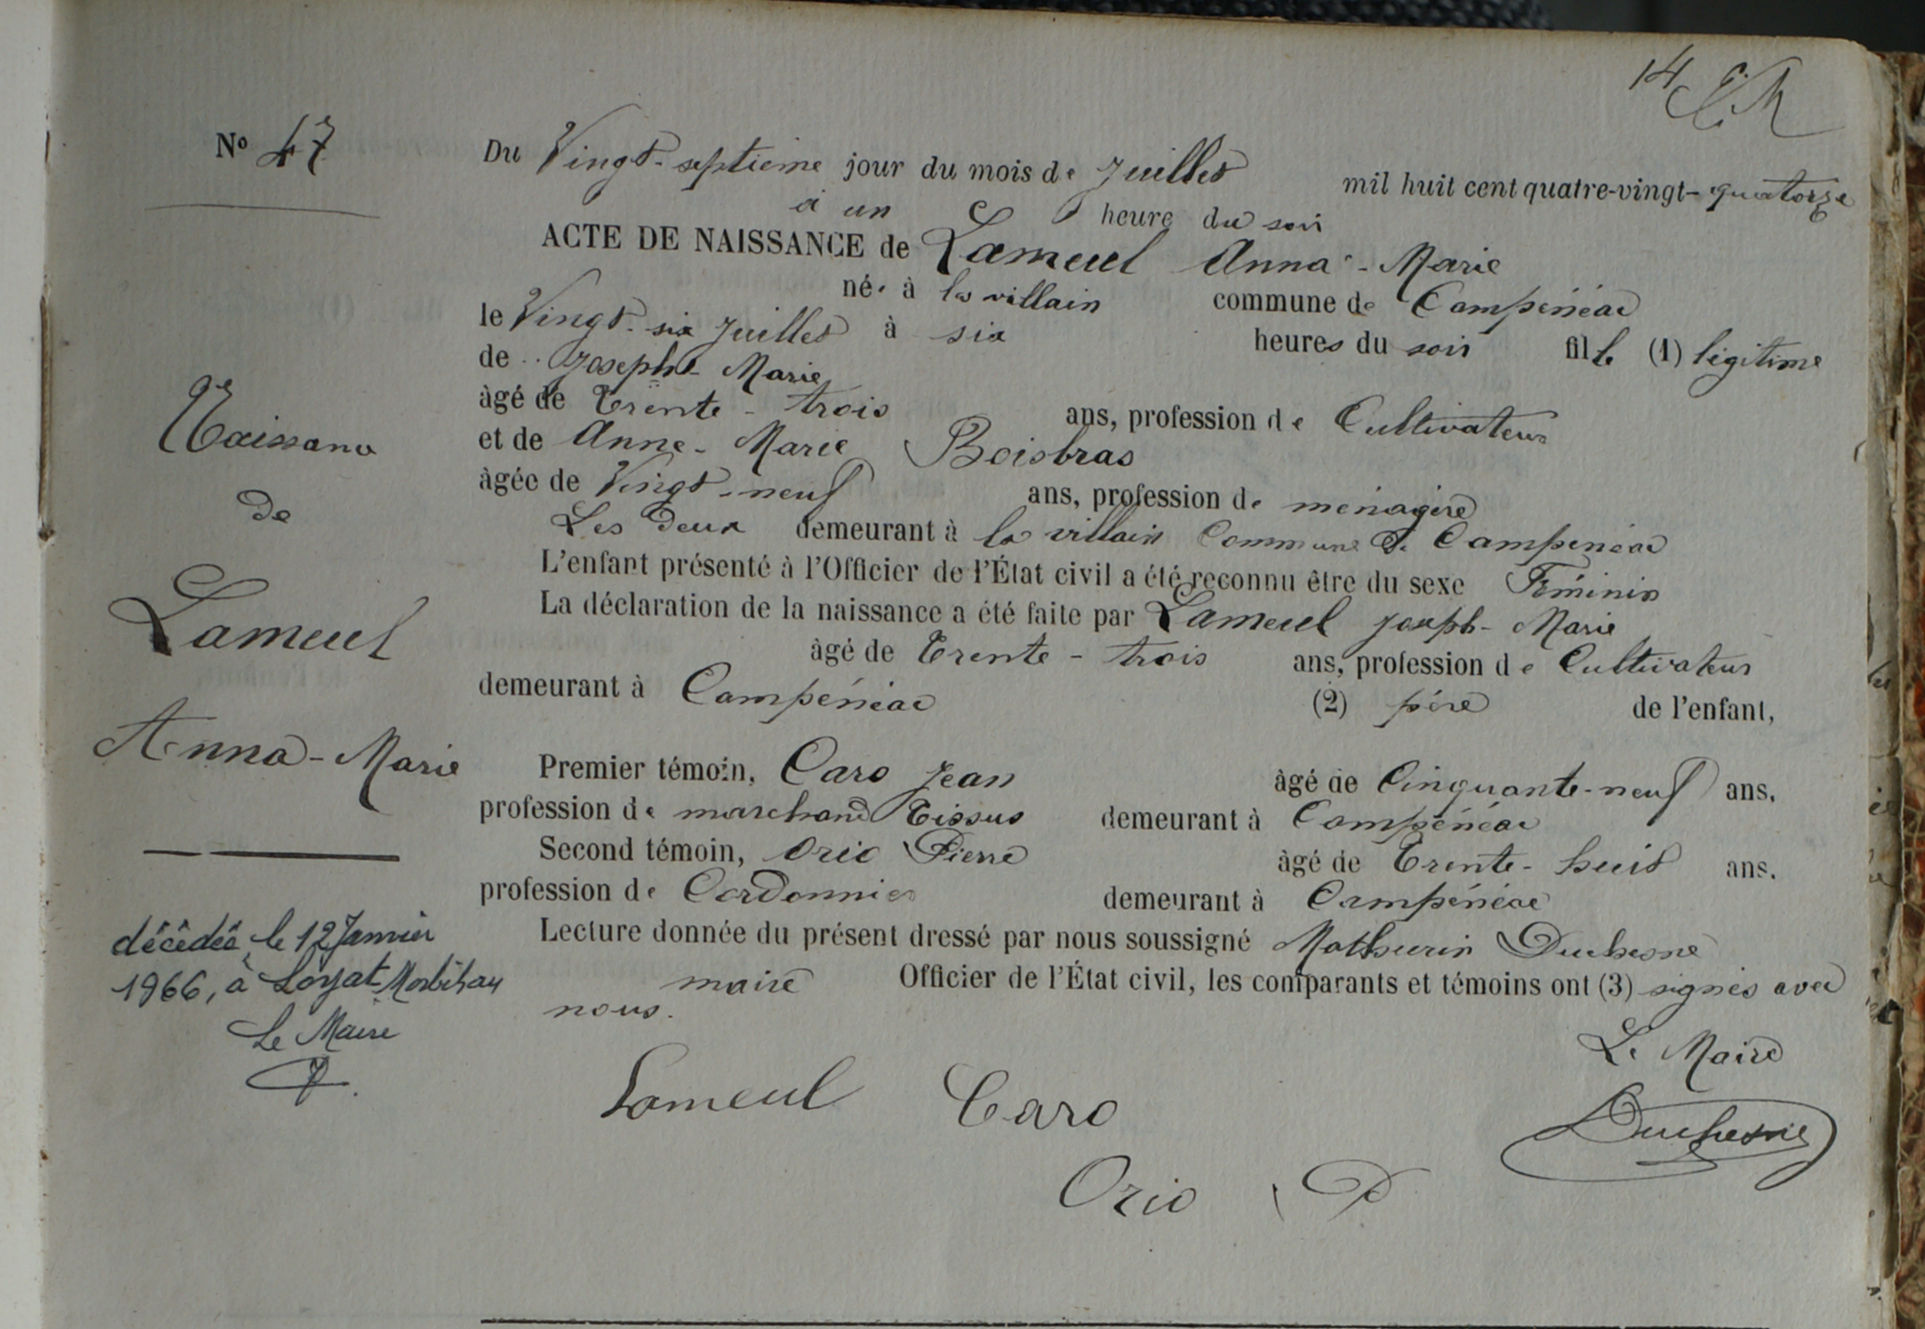 14
N° 47
Du Vingt-septième jour du mois de Juillet mil huit cent quatre-vingt-quatorze
à un heure du soir
ACTE DE NAISSANCE de Lameul Anna-Marie
née à la villain commune de Campénéac
le Vingt-six Juillet à six heures du soir fille (1) légitime
de Joseph-Marie
âgé de Trente-trois ans, profession de Cultivateur
et de Anne-Marie Boisbras
âgée de Vingt-neuf ans, profession de ménagère
Les deux demeurant à la villain Commune de Campénéac
L'enfant présenté à l'Officier de l'État civil a été reconnu être du sexe Féminin
La déclaration de la naissance a été faite par Lameul Joseph-Marie
âgé de Trente-trois ans, profession de Cultivateur
demeurant à Campénéac (2) père de l'enfant,
Premier témoin, Caro Jean âgé de Cinquante-neuf ans,
profession de marchand Tissus demeurant à Campénéac
Second témoin, Orio Pierre âgé de Trente-huit ans,
profession de Cordonnier demeurant à Campénéac
Lecture donnée du présent dressé par nous soussigné Mathurin Duchesne
maire Officier de l'État civil, les comparants et témoins ont (3) signés avec
nous.
Le Maire
Lameul Caro Duchesne
Orio P
Naissance
de
Lameul
Anna-Marie
décédée le 12 Janvier
1966, à Loyat Morbihan
Le Maire